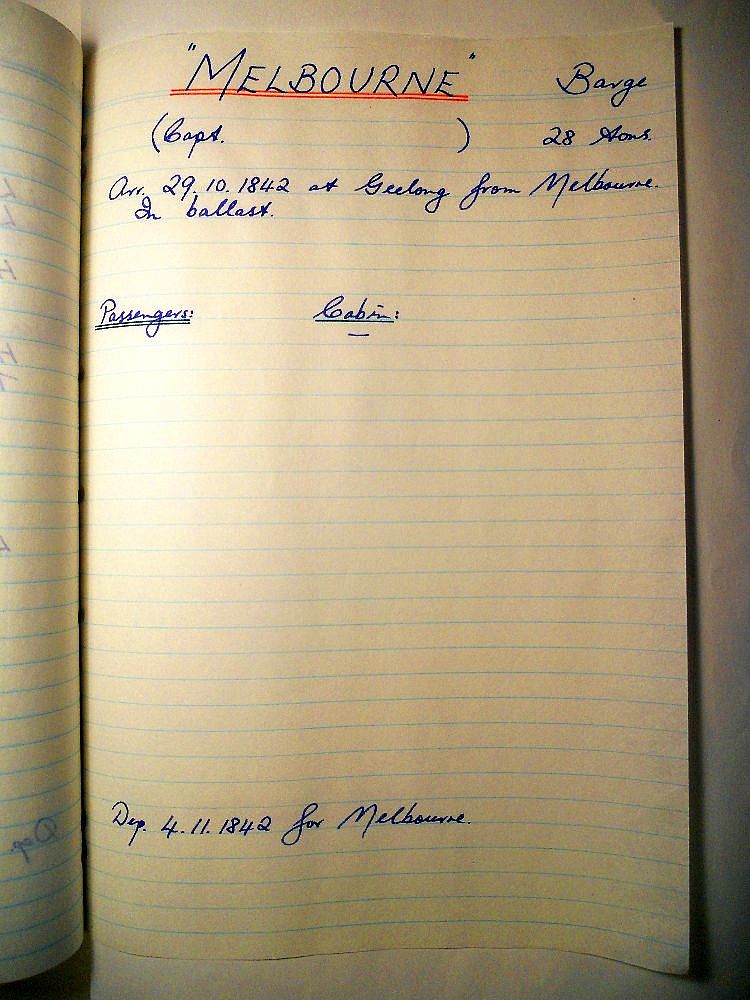 "MELBOURNE" Barge
(Capt. ) 28 tons.
Arr. 29.10.1842 at Geelong from Melbourne.
In ballast.
Passengers: Cabin:
—
Dep. 4.11.1842 for Melbourne.